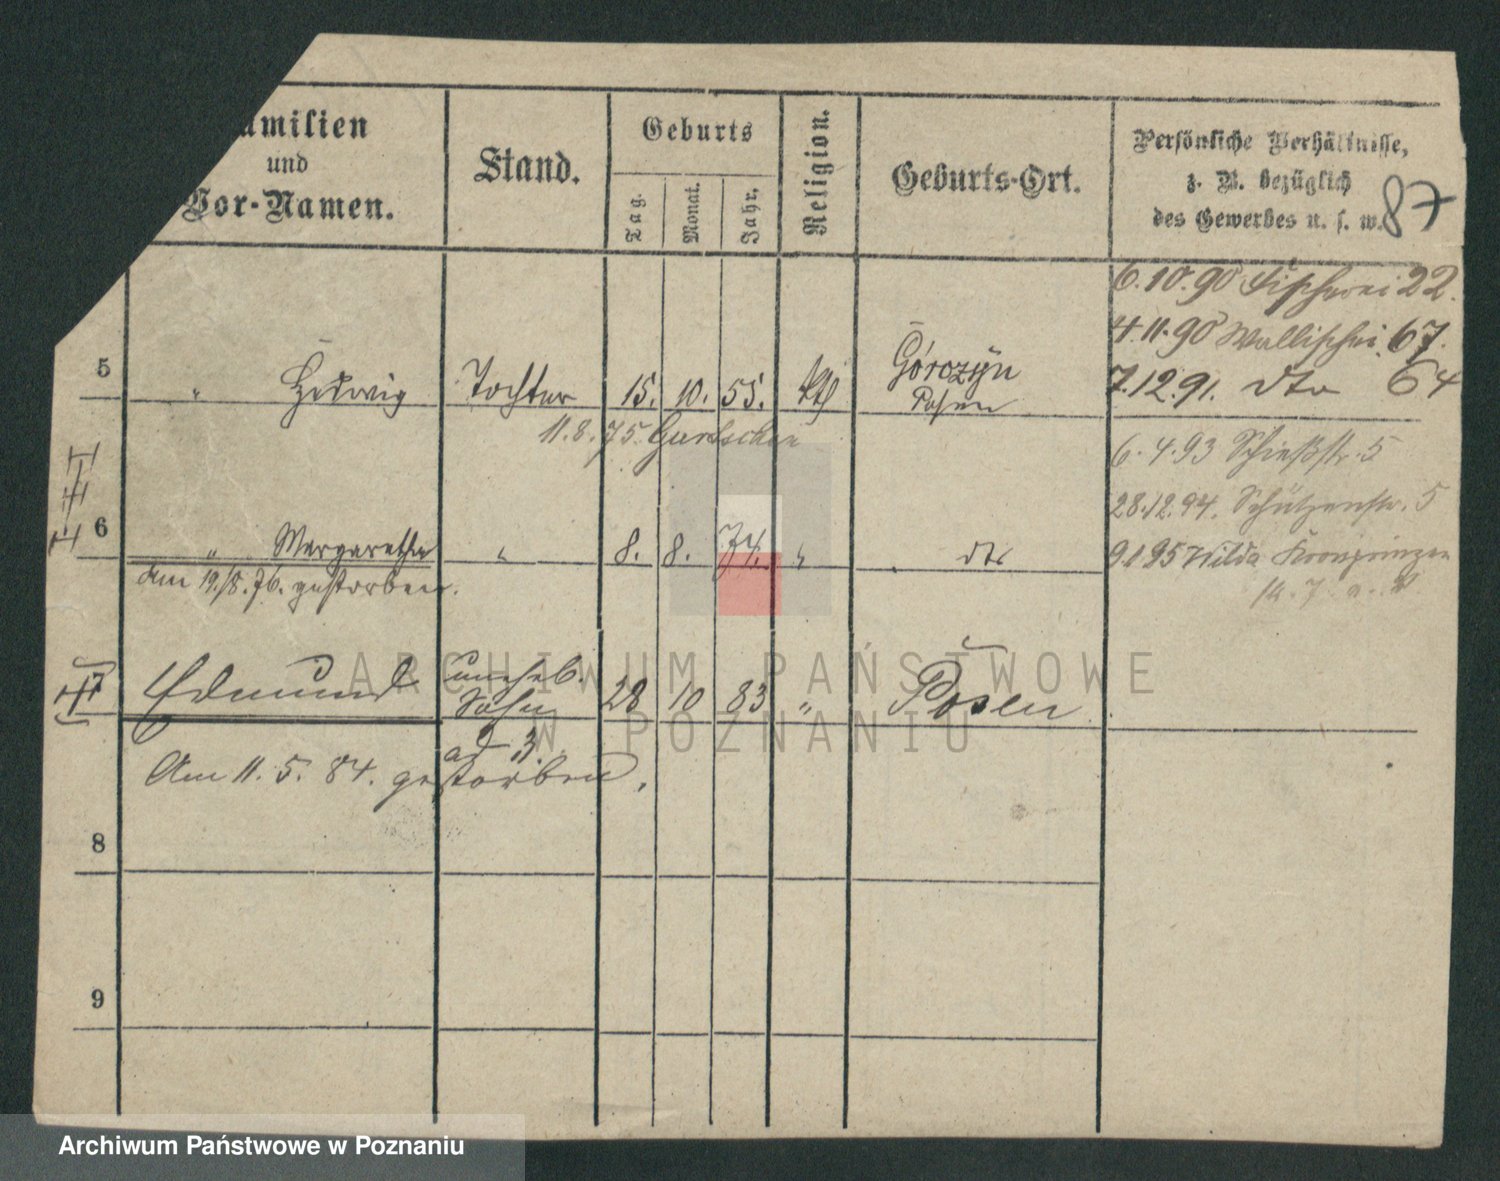 Familien
und
Vor-Namen.
Stand.
Geburts
Tag.
Monat.
Jahr.
Religion.
Geburts-Ort.
Persönliche Verhältnisse,
z. B. bezüglich
des Gewerbes u. s. w.
87
6.10.90 Fischerei 22.
4.11.90 Wallischei 67.
5 " Hedwig Tochter 15. 10. 55. kth Górczyn
Posen
7.12.91. dto 64
11.8.75. Gurtschin
6.4.93 Schießstr. 5
28.12.94. Schützenstr. 5
6 " Margaretha " 8. 8. 74. " dto
9.1.95 Wilda Kronprinzen
am 19./8.76. gestorben.
7 Edmund unehel. Sohn 28 10 83 " Posen
ad 3.
Am 11. 5. 84. gestorben.
8
9
ARCHIWUM PAŃSTWOWE
W POZNANIU
Archiwum Państwowe w Poznaniu